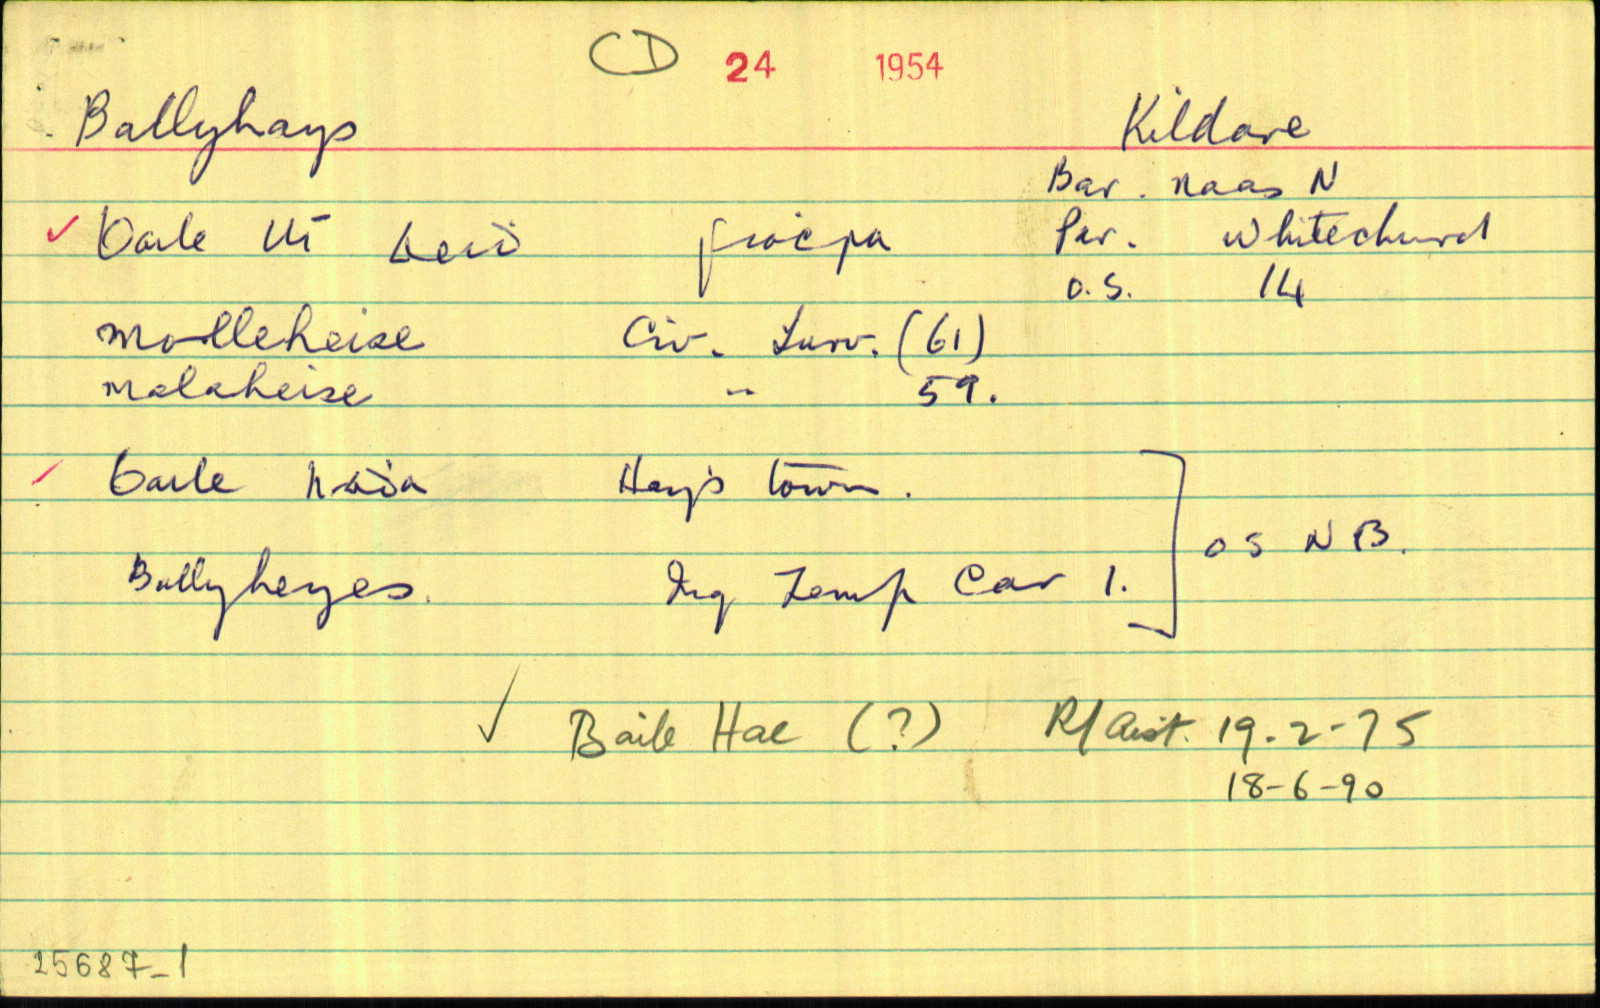 CD 24 1954
Ballyhays Kildare
Bar. Naas N
✓ baile Uí Par. Whitechurch
O.S. 14
Molleheise Civ. Surv. (61)
Malaheise " 59.
baile Hay's town.
OS NB.
Ballyheyes. Inq Temp Car 1.
✓ Baile Hae (?) 19-2-75
18-6-90
25687-1